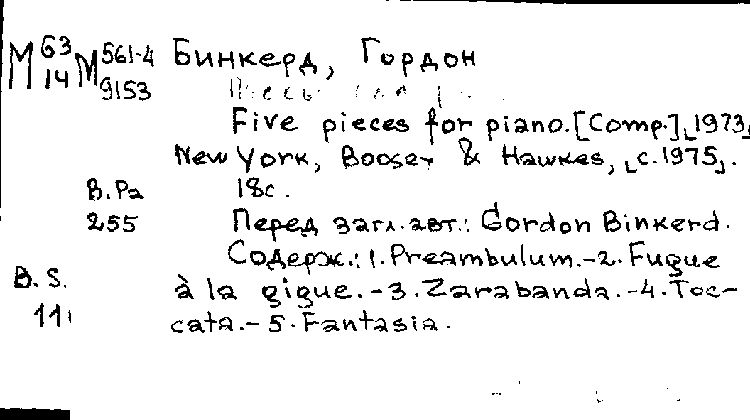 М 63/14 М 561-4/9153 Бинкерд, Гордон
Five pieces for piano. [Comp.] [1973]
New York, Boosey & Hawkes, [c.1975].
В.Ра 18с.
255 Перед загл. авт.: Gordon Binkerd.
Содерж.: 1. Preambulum.-2. Fugue
B.S. à la gigue.-3. Zarabanda.-4. Toc-
11 cata.-5. Fantasia.